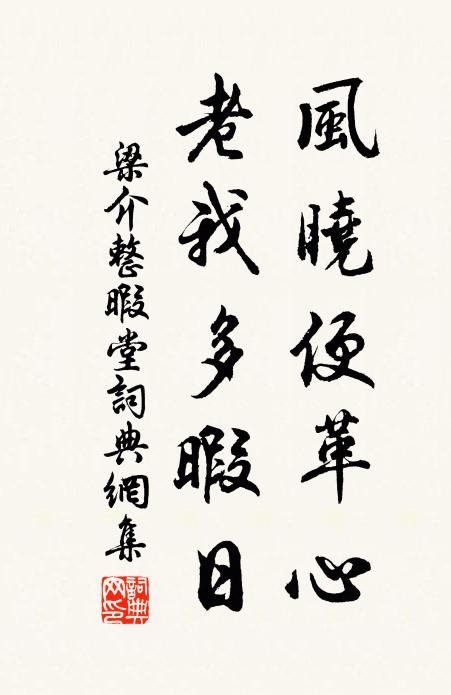 風曉便革心
老我多暇日
梁介整暇堂詞典網集
詞典網印